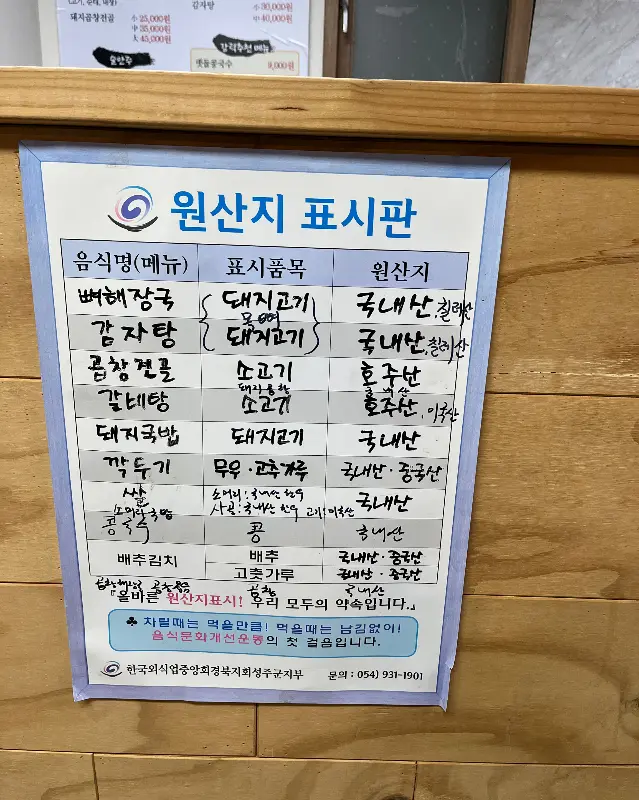 돼지곱창전골
小 25,000원
中 35,000원
大 45,000원
감자탕
小 30,000원
中 40,000원
술안주
강력추천 메뉴
맷돌콩국수 9,000원
원산지 표시판
음식명(메뉴) 표시품목 원산지
뼈해장국 돼지고기 국내산,칠레산
목뼈
감자탕 돼지고기 국내산,칠레산
곱창전골 소고기 호주산
돼지곱창
갈비탕 소고기 호주산,미국산
돼지국밥 돼지고기 국내산
깍두기 무우·고추가루 국내산·중국산
쌀 국내산
소머리국밥 소머리:국내산 한우
사골:국내산 한우 고기:미국산
콩국수 콩 국내산
배추김치 배추 국내산·중국산
고춧가루 국내산·중국산
곱창 국내산
올바른 원산지표시! 우리 모두의 약속입니다.」
♣ 차릴때는 먹을만큼! 먹을때는 남김없이!
음식문화개선운동의 첫 걸음입니다.
한국외식업중앙회경북지회성주군지부 문의 : 054) 931-1901